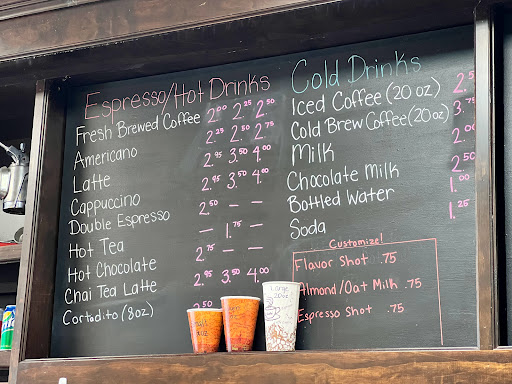 Espresso/Hot Drinks
Fresh Brewed Coffee 2.00 2.25 2.50
Americano 2.25 2.50 2.75
Latte 2.95 3.50 4.00
Cappuccino 2.95 3.50 4.00
Double Espresso 2.50 — —
Hot Tea — 1.75 —
Hot Chocolate 2.75 — —
Chai Tea Latte 2.95 3.50 4.00
Cortadito (8oz) 2.50
Cold Drinks
Iced Coffee (20 oz) 2.5
Cold Brew Coffee (20oz) 3.75
Milk 2.00
Chocolate Milk 2.50
Bottled Water 1.00
Soda 1.25
Customize!
Flavor Shot .75
Almond/Oat Milk .75
Espresso Shot .75
Large
20oz